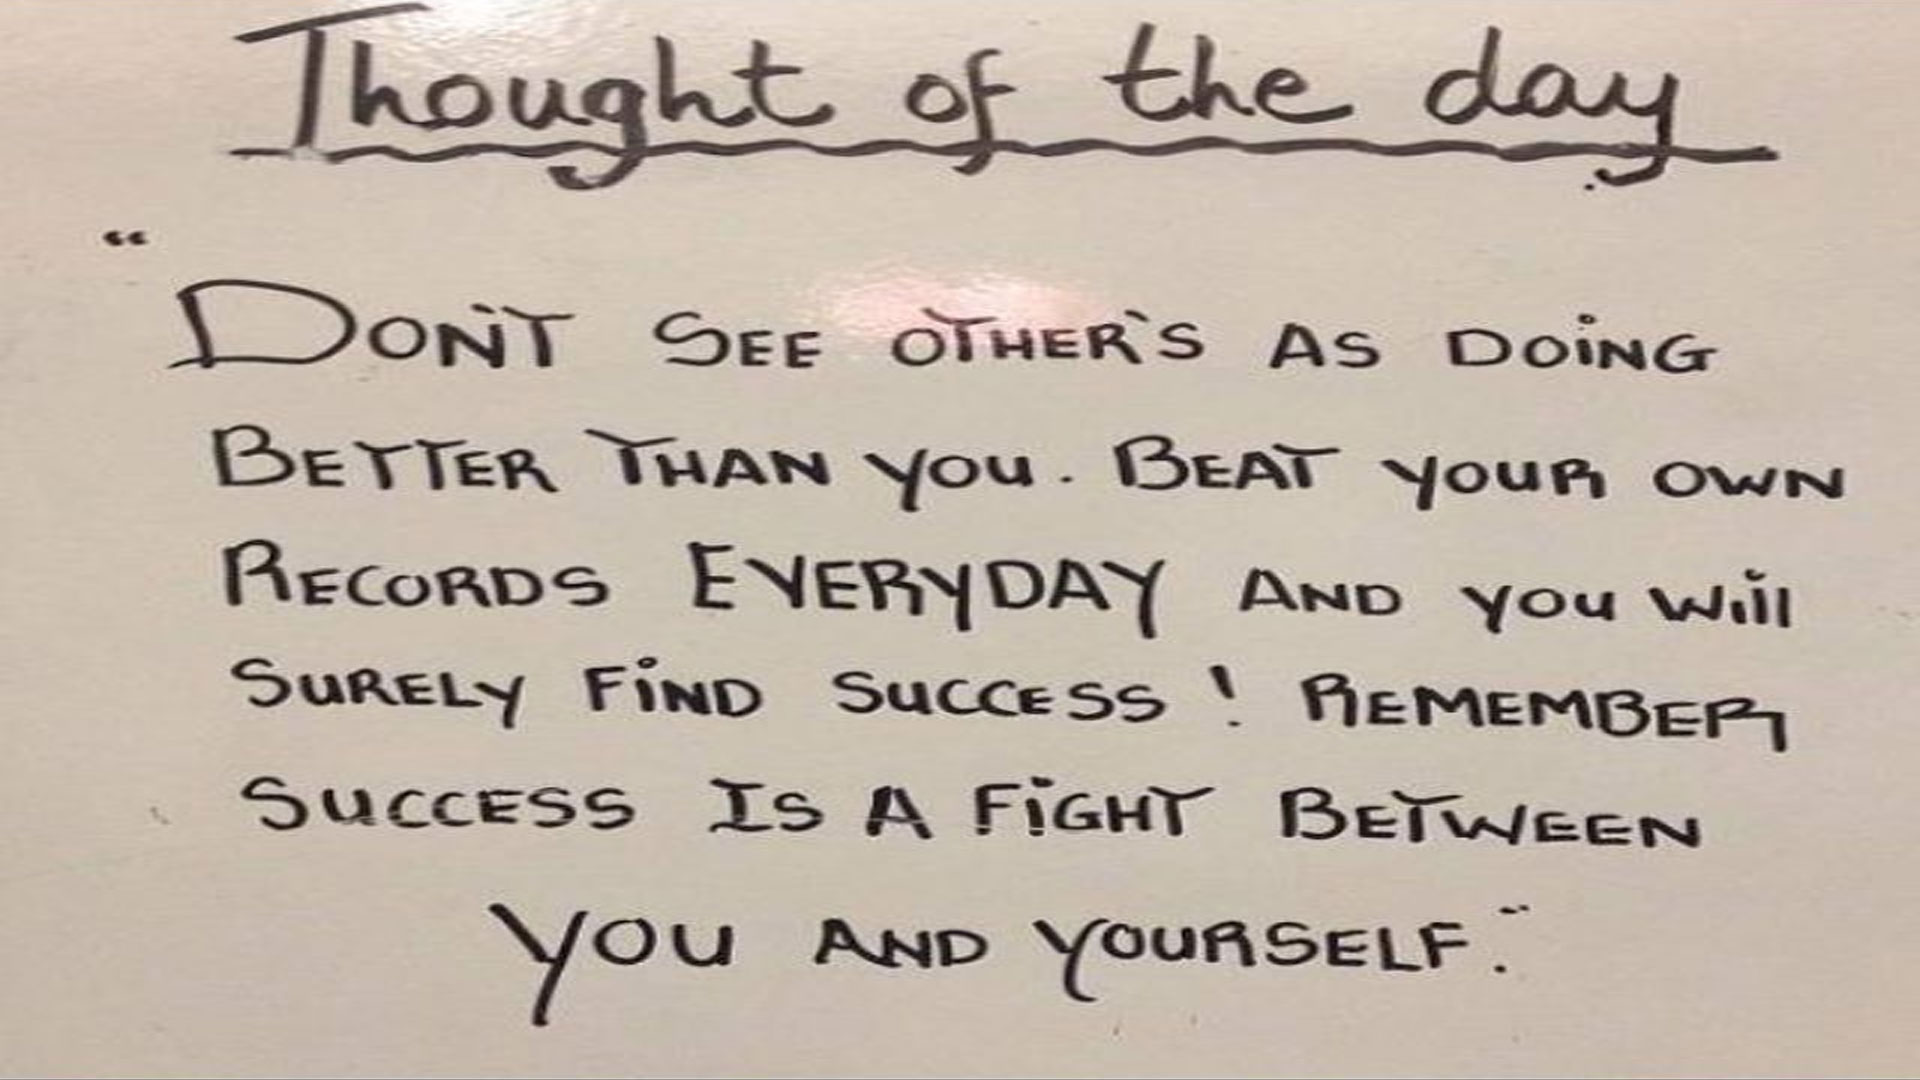 Thought of the day
“
DON'T SEE OTHER'S AS DOING
BETTER THAN YOU. BEAT YOUR OWN
RECORDS EVERYDAY AND YOU WILL
SURELY FIND SUCCESS! REMEMBER
SUCCESS IS A FIGHT BETWEEN
YOU AND YOURSELF.”